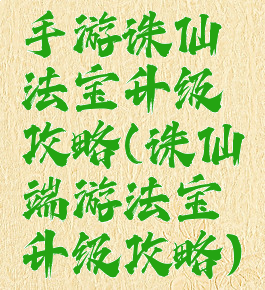 手游诛仙
法宝升级
攻略(诛仙
端游法宝
升级攻略)